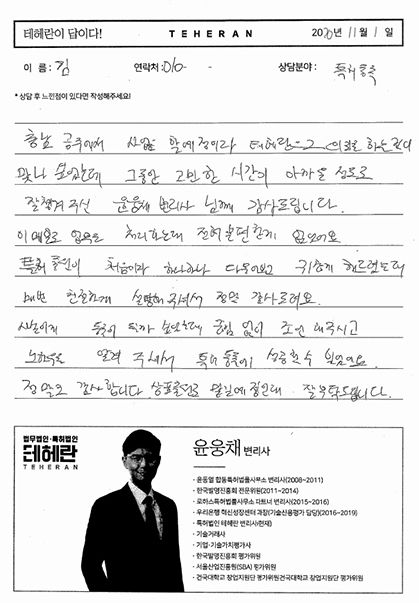 테헤란이 답이다!
TEHERAN
2020년 11월 1일
이 름 : 김
연락처 : 010- -
상담분야 : 특허등록
* 상담 후 느낀점이 있다면 작성해주세요!
충남 공주에서 사업을 할 예정이라 테헤란으로 의뢰를 하는 것이
맞나 싶었는데 그동안 고민한 시간이 아까울 정도로
잘 챙겨주신 윤웅채 변리사님께 감사드립니다.
이메일로 업무를 처리하는데 전혀 불편한게 없었어요
특허 출원이 처음이라 하나하나 다 물어보고 귀찮게 해드렸는데
매번 친절하게 설명해 주셔서 정말 감사드려요.
등록이 될까 싶었는데 끊임 없이 조언 해주시고
노하우를 알려 주셔서 특허 등록에 성공할 수 있었어요.
정말로 감사합니다 상표출원도 맡길 예정인데 잘 부탁드립니다.
법무법인·특허법인
테헤란
TEHERAN
윤웅채 변리사
· 윤동열 합동특허법률사무소 변리사(2008~2011)
· 한국발명진흥회 전문위원(2011~2014)
· 로하스특허법률사무소 파트너 변리사(2015~2016)
· 우리은행 혁신성장센터 과장(기술신용평가 담당)(2016~2019)
· 특허법인 테헤란 변리사(현재)
· 기술거래사
· 기업·기술가치평가사
· 한국발명진흥회 평가위원
· 서울산업진흥원(SBA) 평가위원
· 건국대학교 창업지원단 평가위원건국대학교 창업지원단 평가위원